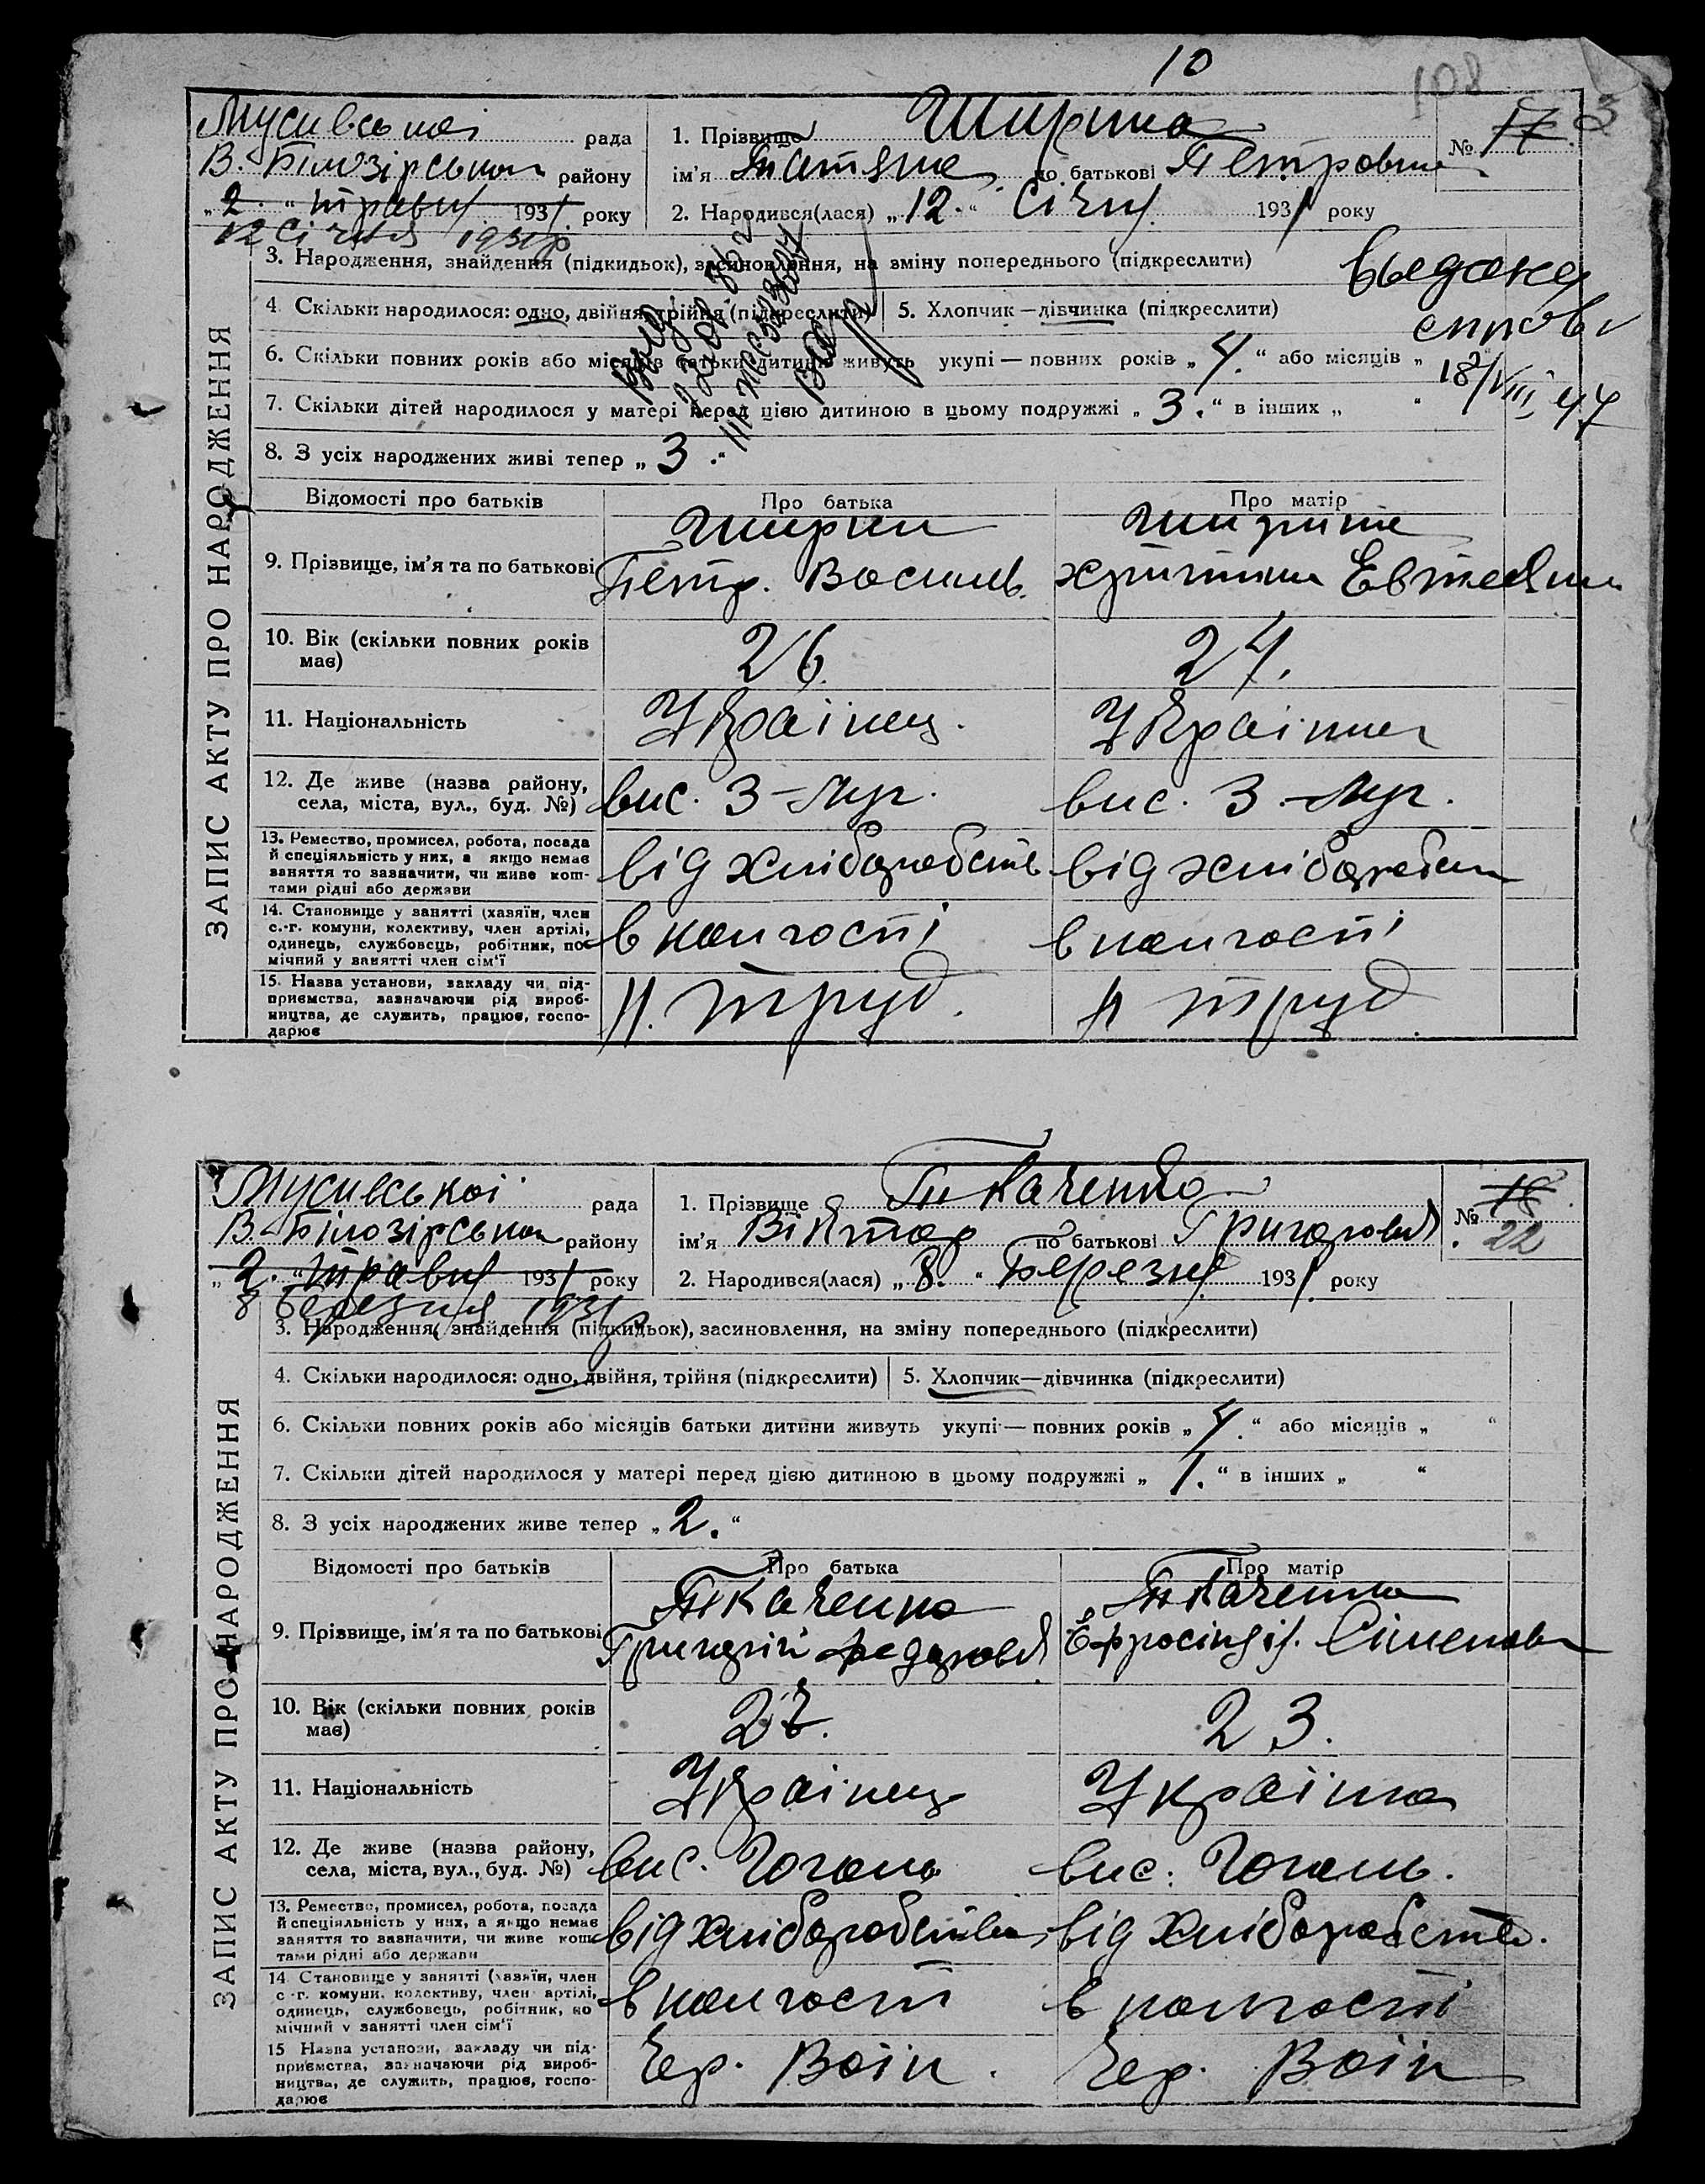 10
108
Мусиевської рада
В. Білозірськом району
„2.“ травня 1931 року
12 Січня 1931р
1. Прізвище Ширина
ім'я Татяна по батькові Петровна
2. Народився(лася) „12.“ Січня 1931 року
№ 17 3
3. Народження, знайдення (підкидьок), засиновлення, на зміну попереднього (підкреслити)
4. Скільки народилося: одно, двійня, трійня (підкреслити)
5. Хлопчик—дівчинка (підкреслити)
6. Скільки повних років або місяців батьки дитини живуть укупі — повних років „4.“ або місяців „ “
7. Скільки дітей народилося у матері перед цією дитиною в цьому подружжі „3.“ в інших „ “
8. З усіх народжених живі тепер „3.“
выдана
18/VIII 47
ЗАПИС АКТУ ПРО НАРОДЖЕННЯ
Відомості про батьків
Про батька
Про матір
9. Прізвище, ім'я та по батькові
Ширин
Петр. Василь.
10. Вік (скільки повних років має)
26.
24.
11. Національність
Українец.
Українка
12. Де живе (назва району, села, міста, вул., буд. №)
вис. 3-Луг.
вис. 3.-Луг.
13. Ремество, промисел, робота, посада
й спеціяльність у них, а якщо немає
заняття то зазначити, чи живе кош-
тами рідні або держави
від хліборобств
від хліборобст
14. Становище у занятті (хазяїн, член
с.-г. комуни, колективу, член артілі,
одинець, службовець, робітник, по-
мічний у занятті член сім'ї
в колгоспі
в колгоспі
15. Назва установи, закладу чи під-
приємства, зазначаючи рід вироб-
ництва, де служить, працює, госпо-
дарює
Н. труд.
Н труд.
Мусиевської рада
В-Білозірськом району
„2.“ травня 1931 року
8 Березня 1931р
1. Прізвище Ткаченко
ім'я Віктор по батькові Григоров
2. Народився(лася) „8.“ Березня 1931 року
№ 18
22
3. Народження, знайдення (підкидьок), засиновлення, на зміну попереднього (підкреслити)
4. Скільки народилося: одно, двійня, трійня (підкреслити)
5. Хлопчик—дівчинка (підкреслити)
6. Скільки повних років або місяців батьки дитини живуть укупі — повних років „4.“ або місяців „ “
7. Скільки дітей народилося у матері перед цією дитиною в цьому подружжі „1.“ в інших „ “
8. З усіх народжених живе тепер „2.“
ЗАПИС АКТУ ПРО НАРОДЖЕННЯ
Відомості про батьків
Про батька
Про матір
9. Прізвище, ім'я та по батькові
Ткаченко
Григорій Федоров
Ткаченко
Єфросінія. Сіменовн
10. Вік (скільки повних років має)
23.
11. Національність
Українец
Українка
12. Де живе (назва району, села, міста, вул., буд. №)
вис. Гоголь
вис. Гоголь.
13. Ремество, промисел, робота, посада
й спеціяльність у них, а якщо немає
заняття то зазначити, чи живе кош-
тами рідні або держави
від хліборобства
від хліборобств.
14. Становище у занятті (хазяїн, член
с-г. комуни, колективу, член артілі,
одинець, службовець, робітник, по
мічний у занятті член сім'ї
в колгоспі
в колгоспі
15 Назва установи, закладу чи під-
приємства, зазначаючи рід вироб-
ництва, де служить, працює, госпо-
дарює
Чер. Воін.
Чер. Воін